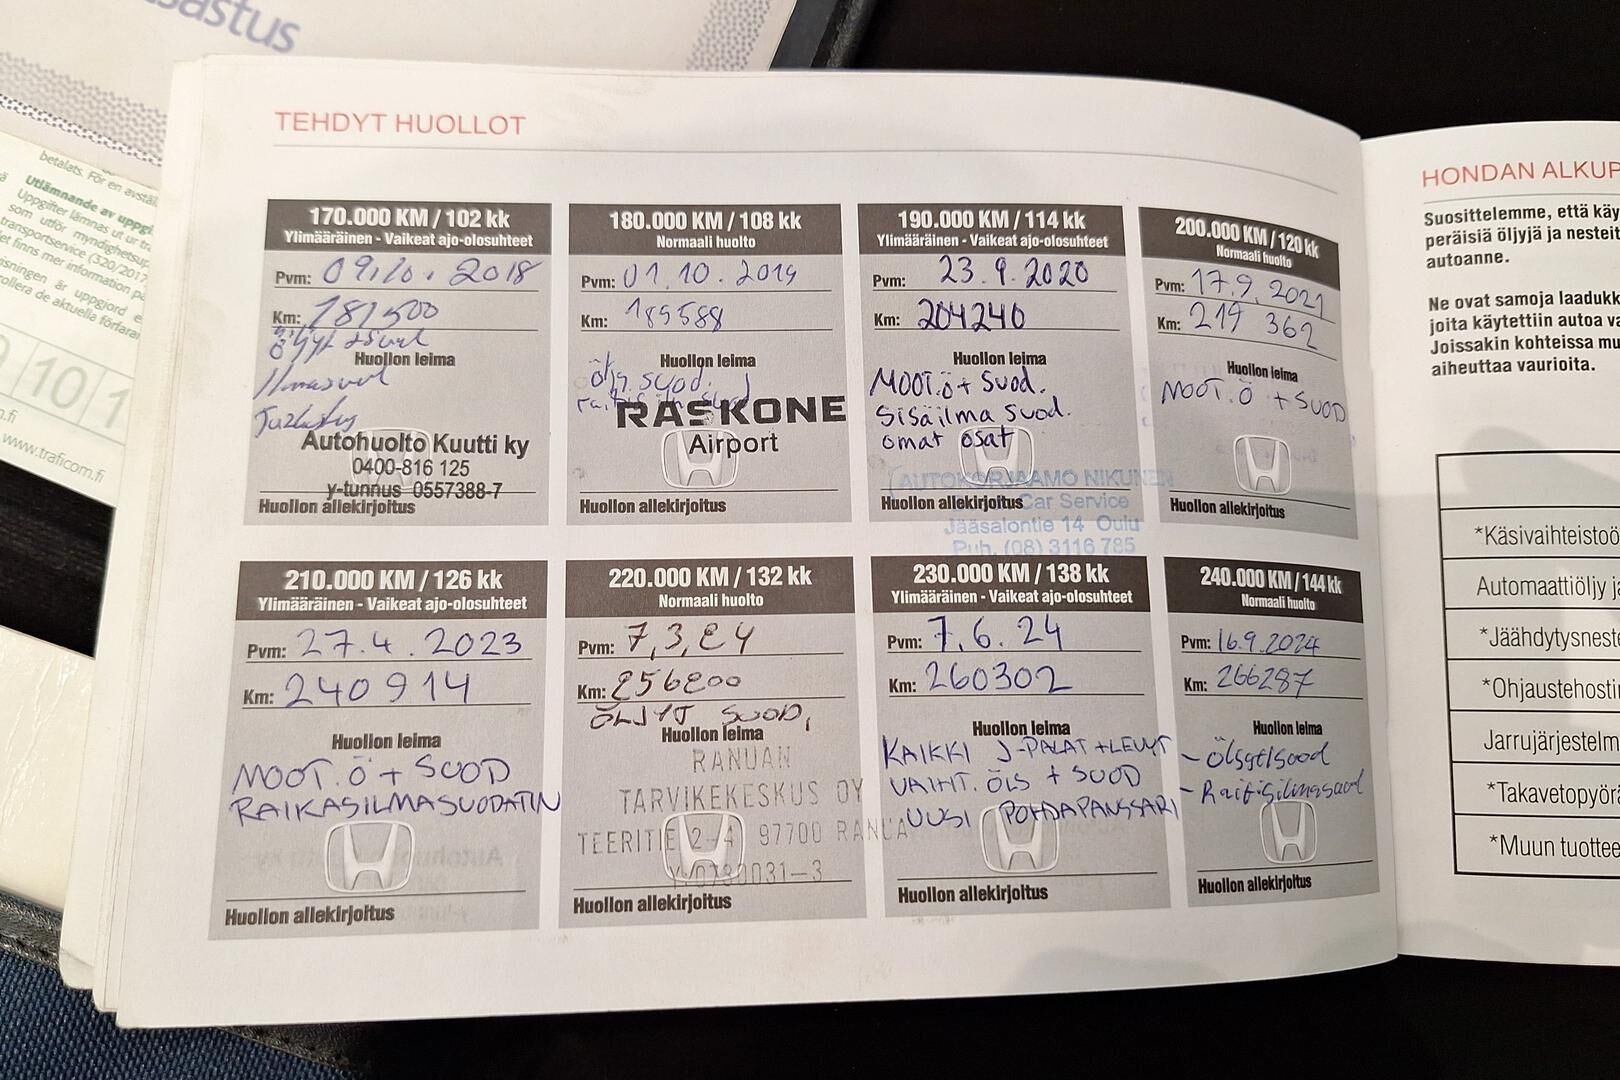 TEHDYT HUOLLOT
170.000 KM / 102 kk
Ylimääräinen - Vaikeat ajo-olosuhteet
Pvm: 09.10.2018
Km: 181500
Öljyt
Huollon leima
Ilmasuod
Autohuolto Kuutti ky
0400-816 125
y-tunnus 0557388-7
Huollon allekirjoitus
180.000 KM / 108 kk
Normaali huolto
Pvm: 01.10.2019
Km: 189588
Huollon leima
suod.
RASKONE
Airport
Huollon allekirjoitus
190.000 KM / 114 kk
Ylimääräinen - Vaikeat ajo-olosuhteet
Pvm: 23.9.2020
Km: 204240
Huollon leima
MOOT.Ö + Suod.
Sisäilma suod.
omat osat
AUTOKORJAAMO NIKUNEN
Car Service
Huollon allekirjoitus
Jääsalontie 14 Oulu
Puh. (08) 3116 785
200.000 KM / 120 kk
Normaali huolto
Pvm: 17.9.2021
Km: 219 362
Huollon leima
MOOT.Ö + SUOD
Huollon allekirjoitus
210.000 KM / 126 kk
Ylimääräinen - Vaikeat ajo-olosuhteet
Pvm: 27.4.2023
Km: 240914
Huollon leima
MOOT.Ö + SUOD
RAIKASILMASUODATIN
Huollon allekirjoitus
220.000 KM / 132 kk
Normaali huolto
Pvm: 7,3,24
Km: 256200
ÖLJYT SUOD,
Huollon leima
RANUAN
TARVIKEKESKUS OY
TEERITIE 2-4 97700 RANUA
Y-0780031-3
Huollon allekirjoitus
230.000 KM / 138 kk
Ylimääräinen - Vaikeat ajo-olosuhteet
Pvm: 7.6.24
Km: 260302
Huollon leima
KAIKKI J-PALAT+LEVYT
VAIHT. ÖLJ + SUOD
UUSI POHJAPANSSARI
Huollon allekirjoitus
240.000 KM / 144 kk
Normaali huolto
Pvm: 16.9.2024
Km: 266287
Huollon leima
Huollon allekirjoitus
HONDAN ALKUP
Suosittelemme, että käy
peräisiä öljyjä ja nesteit
autoanne.
Ne ovat samoja laadukk
joita käytettiin autoa va
Joissakin kohteissa mu
aiheuttaa vaurioita.
*Käsivaihteistoö
Automaattiöljy ja
*Jäähdytysneste
*Ohjaustehostin
Jarrujärjestelm
*Takavetopyörä
*Muun tuottee
betalats. För en avstäl
Utlämnande av uppg
Uppgifter lämnas ut ur tr
som utför myndighetsup
transportservice (320/2017
et finns mer information på
10 1
www.traficom.fi